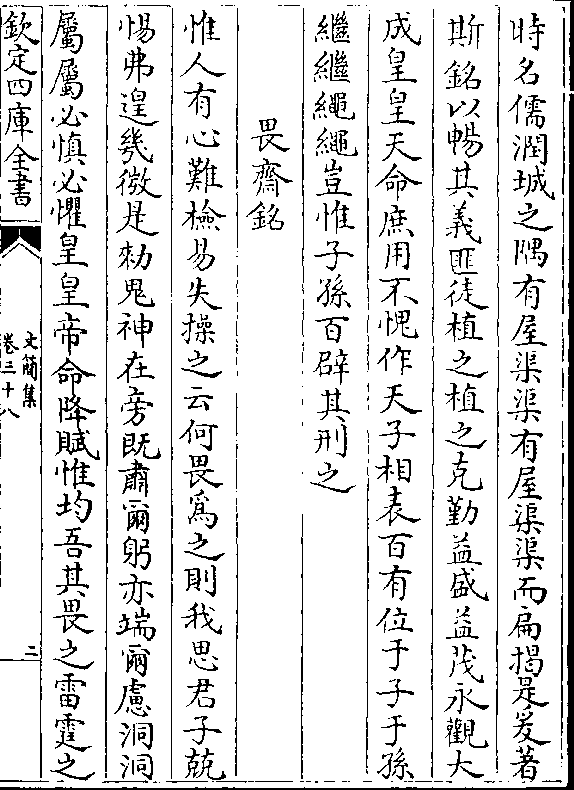 時名儒潤城之隅有屋渠渠有屋渠渠而扁揭是爰著
斯銘以暢其義匪徒植之植之克勤益盛益茂永觀大
成皇皇天命庶用不愧作天子相表百有位于子于孫
繼繼繩繩豈惟子孫百辟其刑之
畏齋銘
惟人有心難檢易失操之云何畏爲之則我思君子兢
惕弗遑幾微是勑鬼神在旁既肅爾躬亦端爾慮洞洞
屬屬必慎必懼皇皇帝命降賦惟均吾其畏之雷霆之
欽定四庫全書
文簡集
卷三十八
二